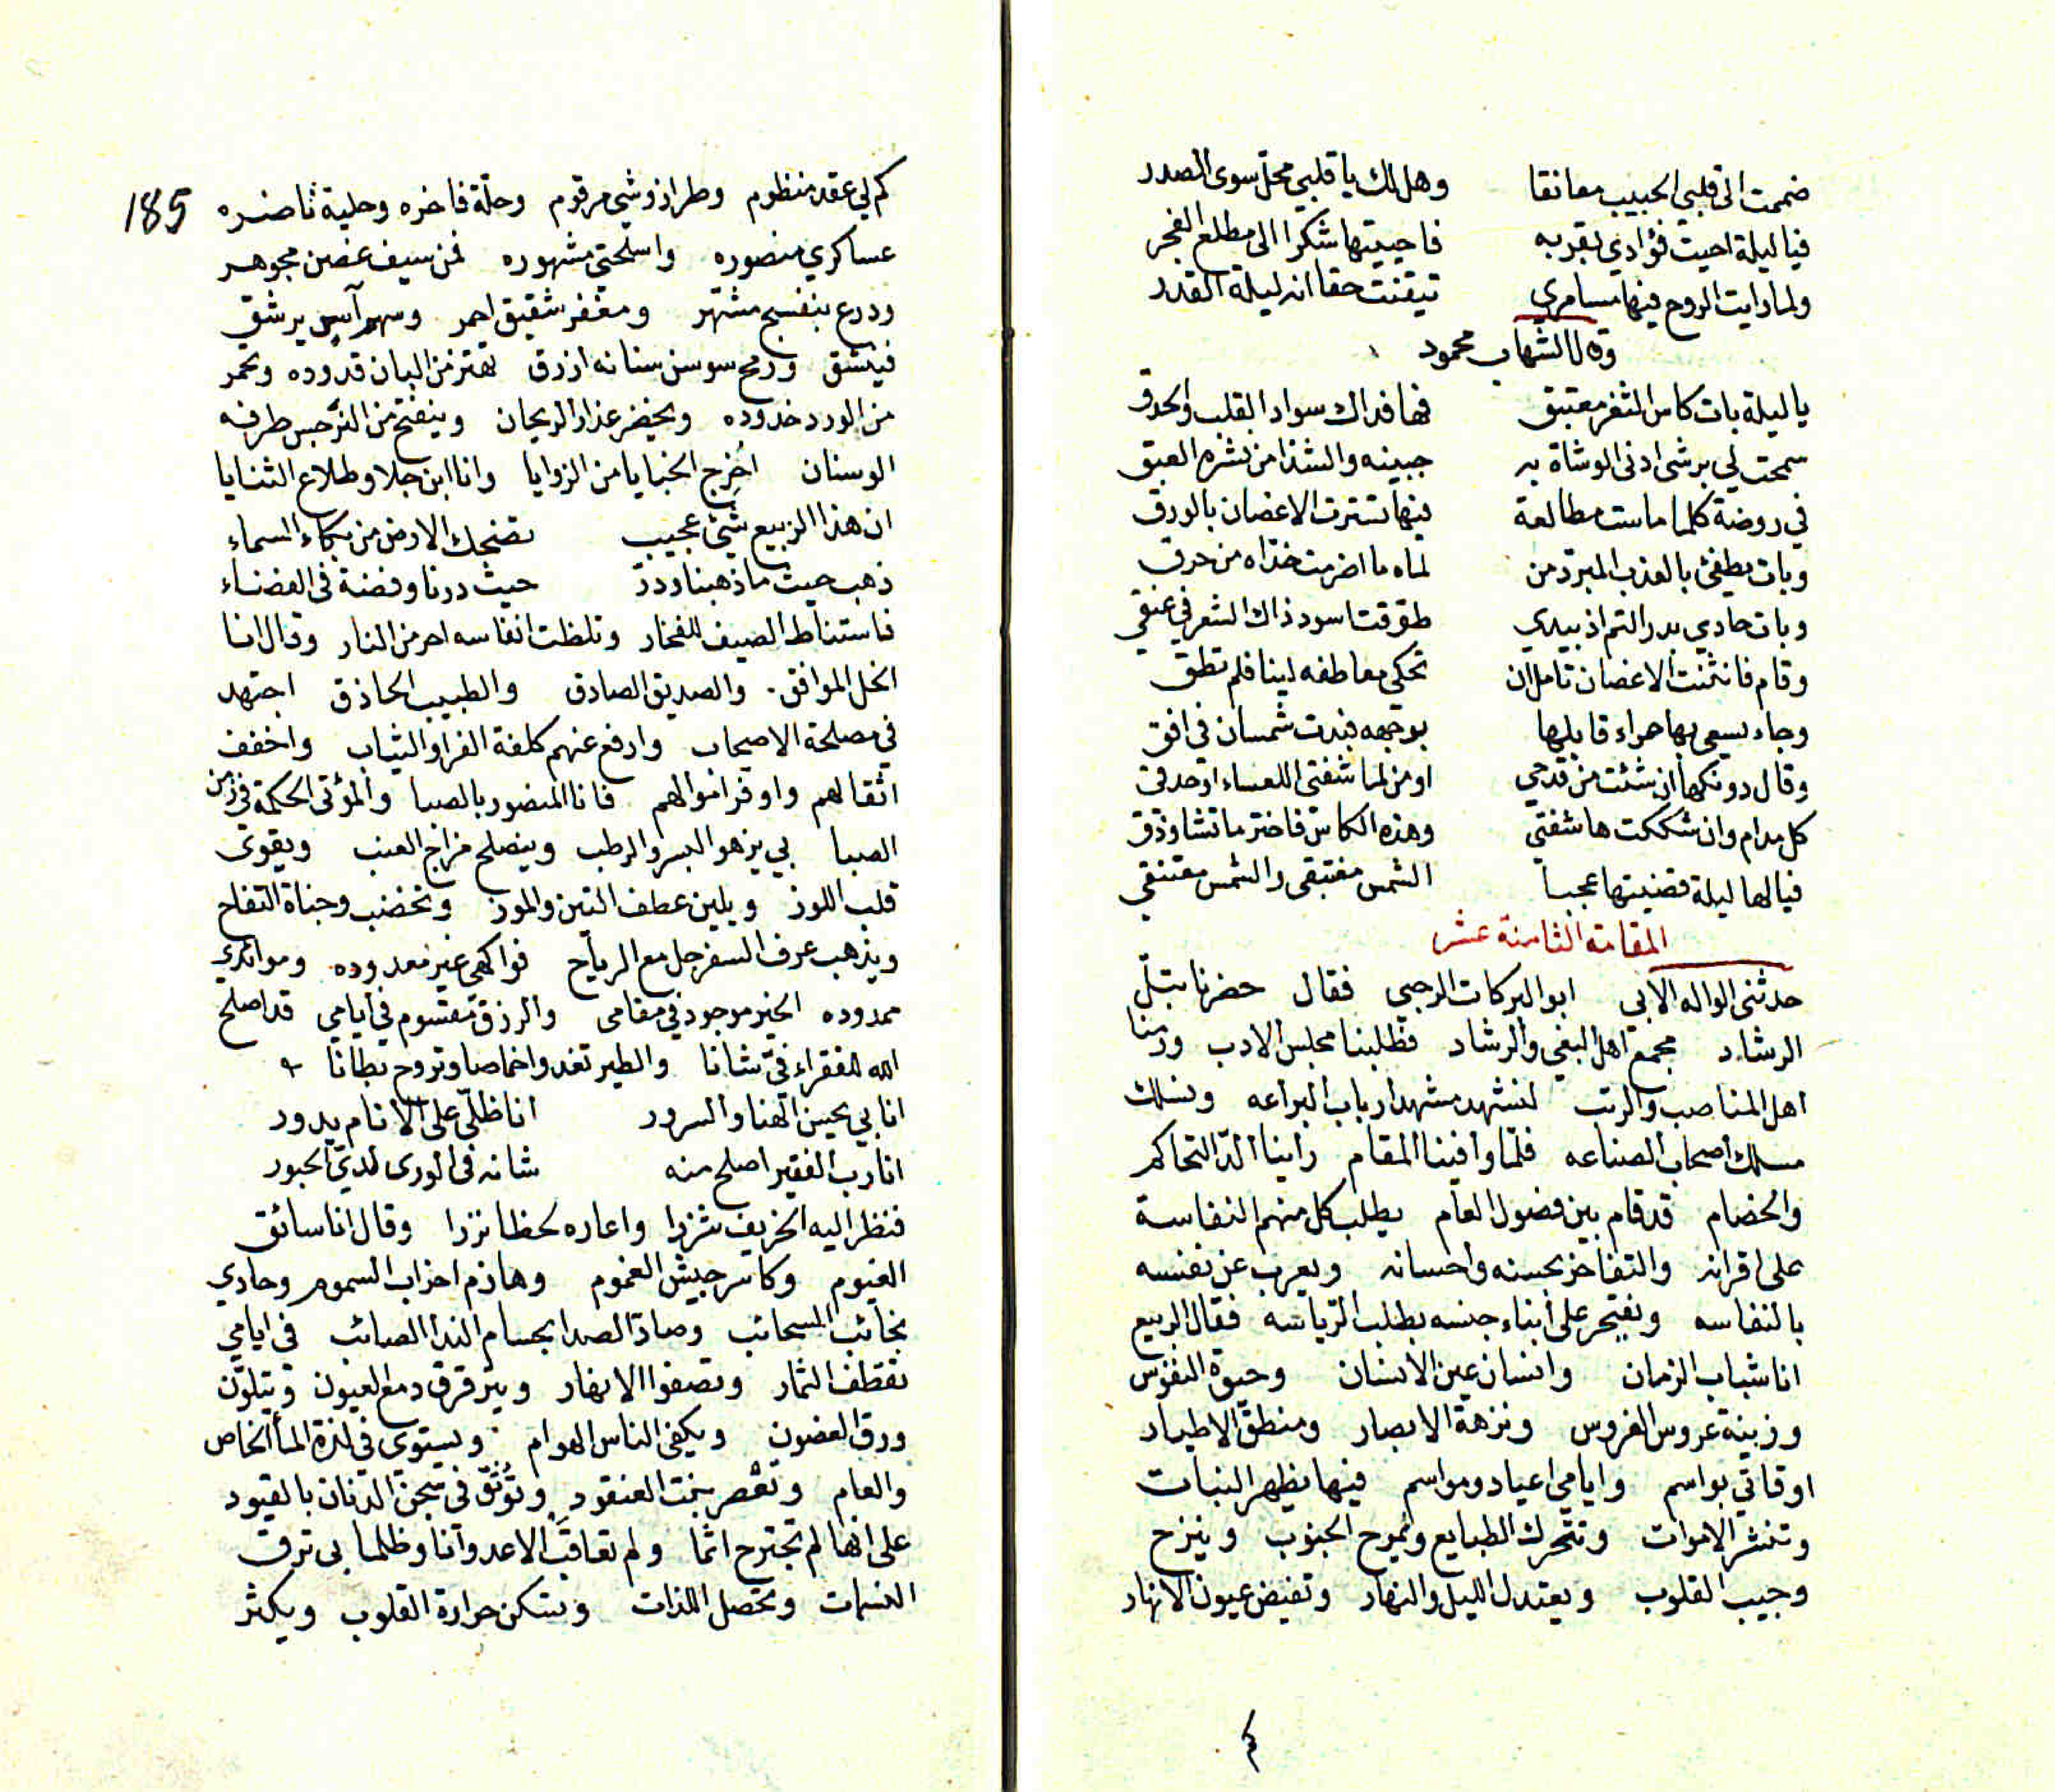 ضممت الى قلبي الحبيب معانقا وهل لك يا قلبي محل سوى الصدر
فيا ليلة احيت فؤادي بقربه فاحييتها شكرا الى مطلع الفجر
ولما رايت الروح فيها مسامري تيقنت حقا انه ليلة القدر
وقال الشهاب محمود
يا ليلة بات كاس الثغر مغتبق فها فداك سواد القلب والحدق
سمحت لي برشى ادنى الوشاة به جبينه والشذا من نشره العبق
في روضة كلما ماست مطالعة فيها تسترت الاغصان بالورق
وبات يطفئ بالعذب المبرد من لماه ما اضرمت خداه من حرق
وبات حادي بدر التم اذ بيدي طوقت اسود ذاك الشعر في عنقي
وقام فانثنت الاغصان تامل ان تحكي معاطفه لينا فلم تطق
وجاء يسعى بها حمراء قابلها بوجهه فبدت شمسان في افق
وقال دونكها ان شئت من قدحي او من لما شفتي اللعساء او حدقي
كل مدام وان شككت ها شفتي وهذه الكاس فاختر ما تشا وذق
فيا لها ليلة قضيتها عجبا الشمس مغتبقي والشمس معتنقي
المقامة الثامنة عشر
حدثني الواله الابي ابو البركات الرجبي فقال حضرنا بتل
الرشاد مجمع اهل البغي والرشاد فطلبنا مجلس الادب ورمنا
اهل المناصب والرتب لنشهد مشهد ارباب البراعه ونسلك
مسلك اصحاب الصناعه فلما وافينا المقام راينا الد التحاكم
والخصام قد قام بين فصول العام يطلب كل منهم النفاسة
على اقرانه والتفاخر بحسنه واحسانه ويعرب عن نفسه
بالنفاسه ويفتخر على ابناء جنسه بطلب الرياسه فقال الربيع
انا شباب الزمان وانسان عين الانسان وحيوة النفوس
وزينة عروس الغروس ونزهة الابصار ومنطق الاطيار
اوقاتي بواسم وايامي اعياد ومواسم فيها يظهر النبات
وتنشر الاموات وتتحرك الطبايع وتموح الجنوب وينزح
وجيب القلوب ويعتدل الليل والنهار وتفيض عيون الانهار
185
كم لي عقد منظوم وطراز وشي مرقوم وحلة فاخره وحلية ناضره
عساكري منصوره واسلحتي مشهوره فمن سيف غصن مجوهر
ودرع بنفسج مشتهر ومغفر شقيق احمر وسهم آس يرشق
فينشق ورمح سوسن سنانه ازرق تهتز من البان قدوده وتحمر
من الورد خدوده ويخضر عذار الريحان وينفتح من النرجس طرفه
الوسنان اخرج الخبايا من الزوايا وانا ابن جلا وطلاع الثنايا
ان هذا الربيع شيئ عجيب تضحك الارض من بكاء السماء
ذهب حيث ما ذهبنا ودر حيث درنا وفضة في الفضاء
فاستناط الصيف للفخار وتلظت انفاسه احر من النار وقال انا
الخل الموافق والصديق الصادق والطبيب الحاذق اجتهد
في مصلحة الاصحاب وارفع عنهم كلفة الفرا والثياب واخفف
اثقالهم واوفر اموالهم فانا المنصور بالصبا والمؤتى الحكمة في زمن
الصبا بي يزهو البسر والرطب وينصلح مزاج العنب ويقوى
قلب اللوز ويلين عطف التين والموز وتخضب وجناة التفاح
ويذهب عرف السفرجل مع الرياح فواكهي غير معدوده وموائدي
ممدوده الخير موجود في مقامي والرزق مقسوم في ايامي قد اصلح
الله للفقراء في شانا والطير تغدوا خماصا وتروح بطانا
انا بي يحيين الهنا والسرور انا ظلي على الانام يدور
انا رب الفقير اصلح منه شانه في الورى لدي الحبور
فنظر اليه الخريف شزرا واعاره لحظا نزرا وقال انا سائق
الغيوم وكاسر جيش الغموم وهازم احزاب السموم وحادي
نجائب السحائب وصاد الصدا بحسام الندا الصائب في ايامي
تقطف الثمار وتصفوا الانهار ويترقرق دمع العيون ويتلون
ورق الغصون ويكفى الناس الهوام ويستوي في لذة الماء الخاص
والعام وتعصر بنت العنقود وتوثق في سجن الدنان بالقيود
على انها لم تجترح اثما ولم تعاقب الا عدوانا وظلما بي ترق
النسمات وتحصل اللذات وتسكن حرارة القلوب ويكثر